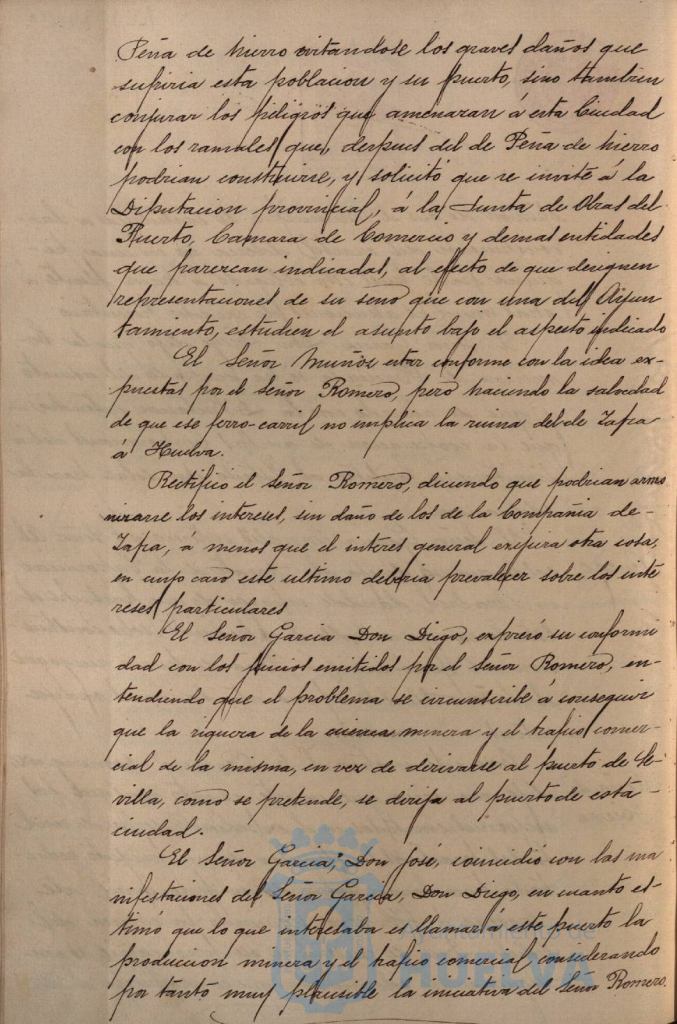 Peña de hierro evitandose los graves daños que
sufriria esta poblacion y su puerto, sino tambien
conjurar los peligros que amenazan á esta Ciudad
con los ramales que, despues del de Peña de hierro
podrian construirse, y solicitó que se invite á la
Diputacion provincial, á la Junta de Obras del
Puerto, Camara de Comercio y demas entidades
que parezcan indicadas, al efecto de que designen
representaciones de su seno que con una del Ayun
tamiento, estudien el asunto bajo el aspecto indicado
El Señor Muñoz estar conforme con la idea ex-
puestas por el Señor Romero, pero haciendo la salvedad
de que ese ferro-carril no implica la ruina del de Zafra
á Huelva.
Rectificó el Señor Romero, diciendo que podrian armo
nizarse los intereses, sin daño de los de la Compañia de-
Zafra, á menos que el interes general exigiera otra cosa,
en cuyo caso este ultimo deberia prevalecer sobre los inte
reses particulares
El Señor Garcia Don Diego, expresó su conformi
dad con los juicios emitidos por el Señor Romero, en-
tendiendo que el problema se circunscribe á conseguir
que la riqueza de la cuenca minera y el trafico comer-
cial de la misma, en vez de derivarse al puerto de Se-
villa, como se pretende, se dirija al puerto de esta-
ciudad.
El Señor Garcia, Don José, coincidió con las ma
nifestaciones del Señor Garcia, Don Diego, en cuanto es-
timó que lo que interesaba es llamar á este puerto la
produccion minera y el trafico comercial considerando
por tanto muy plausible la iniciativa del Señor Romero.
HUELVA